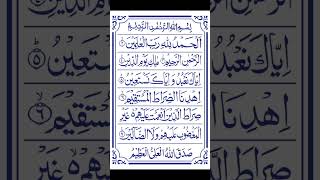 بِسْمِ اللهِ الرَّحْمٰنِ الرَّحِيْمِ
اَلْحَمْدُ لِلّٰهِ رَبِّ الْعٰلَمِيْنَ ۱
الرَّحْمٰنِ الرَّحِيْمِ ۲ مٰلِكِ يَوْمِ الدِّيْنِ ۳
اِيَّاكَ نَعْبُدُ وَ اِيَّاكَ نَسْتَعِيْنُ
اِهْدِنَا الصِّرَاطَ الْمُسْتَقِيْمَ
صِرَاطَ الَّذِيْنَ اَنْعَمْتَ عَلَيْهِمْ غَيْرِ
الْمَغْضُوْبِ عَلَيْهِمْ وَلَا الضَّآلِّيْنَ
صَدَقَ اللهُ الْعَلِىُّ الْعَظِيْمُ